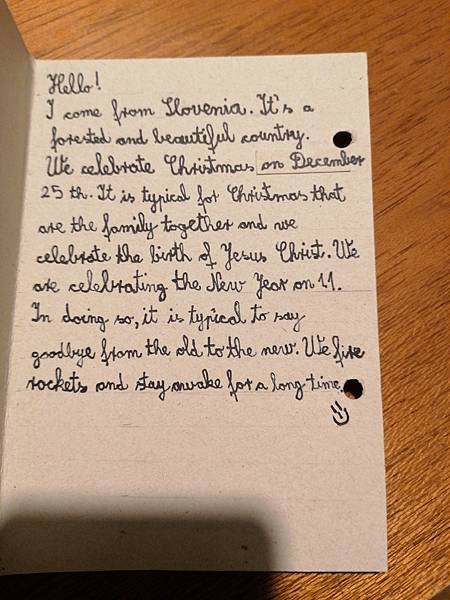 Hello!
I come from Slovenia. It's a
forested and beautiful country.
We celebrate Christmas on December
25 th. It is typical for Christmas that
are the family together and we
celebrate the birth of Jesus Christ. We
are celebrating the New Year on 1 1.
In doing so, it is typical to say
goodbye from the old to the new. We fire
rockets and stay awake for a long time.